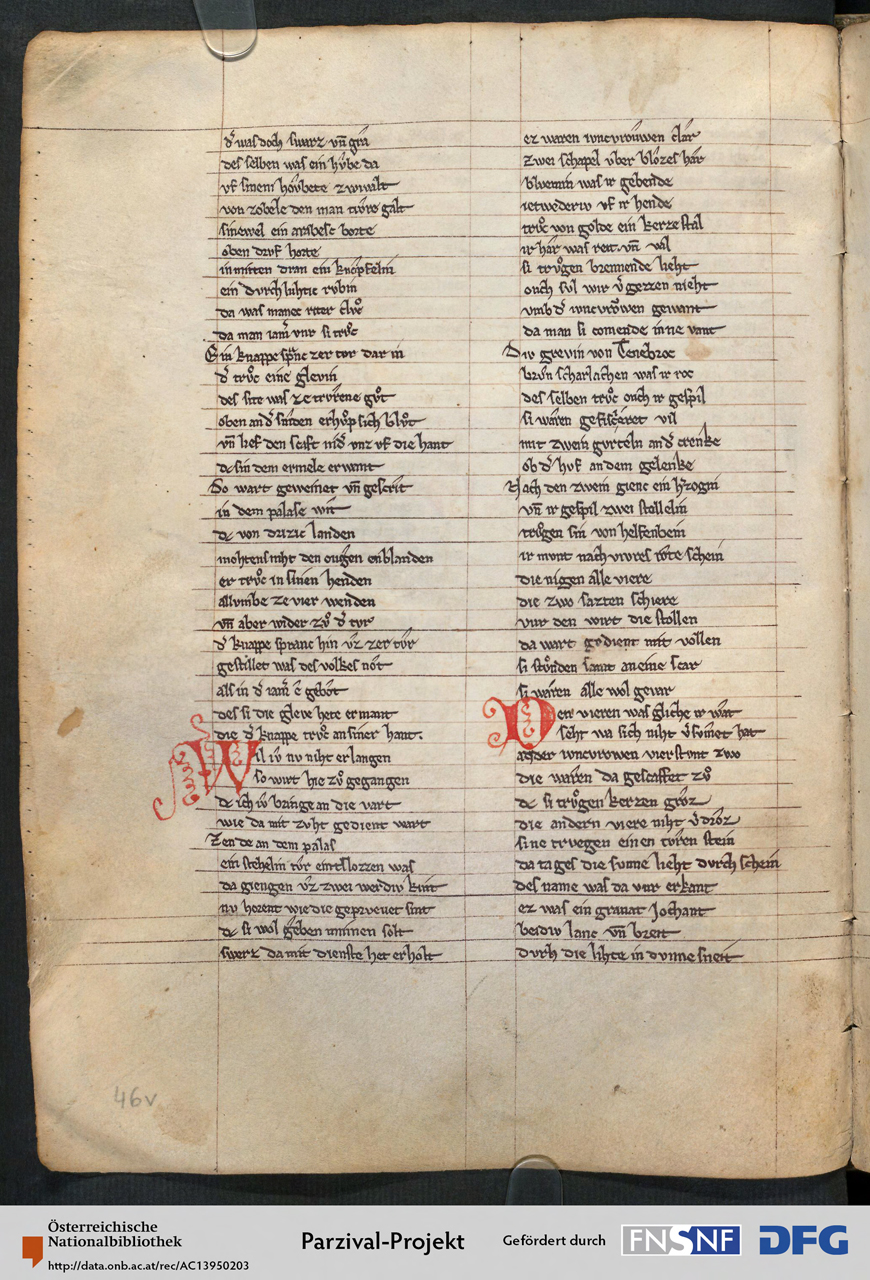 d͛ was doch swarz vn̄ gra
des selben was ein hv̂be da
vf sinem hoͮbete zwivalt
von zobele den man tivre galt
sinewel ein arabesc borte
oben drvf horte
in mitten dran ein knopfelin
ein dvrchlvhtic rvbin
da was manec riter clvͦc
da man iam͛ vur si trvͦc
Ein knappe spranc zer tor dar in
d͛ trvͦc eine glevin
des site was ze trvrene gvͦt
oben and͛ sniden erhvͦp sich blvͦt
vn̄ lief den scaft nid͛ vnz vf die hant
dc sin dem ermele erwant
So wart geweinet vn̄ gescrit
in dem palase wit
dc von drizic landen
mohtens niht den ougen enblanden
er trvͦc in sinen henden
allvmbe ze vier wenden
vn̄ aber wider zvͦ d͛ tvr
d͛ knappe spranc hin vz zer tv̂r
gestillet was des volkes nôt
als in d͛ iam͛ ê gebôt
des si die gleve hete ermant
die d͛ knappe trvͦc an siner hant.
Wil iv nv niht erlangen
so wirt hie zvͦ gegangen
dc ich iv bringe an die vart
wie da mit zvht gedient wart
Zende an dem palas
ein stehelin tv̂r entslozzen was
da giengen vz zwei werdiv kint
nv hoeret wie die geprvevet sint
dc si wol gêben minnen solt
swerz da mit dienste het erholt
ez waren ivncvrouwen clâr
zwei schapel vber blozes hâr
blvemin was ir gebende
ietwederiv vf ir hende
trvͦc von golde ein kerzestal
ir hâr was reit vn̄ val
si trvͦgen brennende lieht
ouch svl wir v͛gezzen nieht
vmb d͛ ivncvrôwen gewant
da man si comende inne vant
Div grevin von Tenebroc
brvn scharlachen was ir roc
des selben trvͦc ouch ir gespil
si wâren gefiscêret vil
mit zwein gvrteln and͛ crenke
ob d͛ hvf an dem gelenke
Nach den zwein gienc ein h͛zogin
vn̄ ir gespil zwei stollelin
trvͦgen sin von helfenbein
ir mvnt nach vivres rôte schein
die nigen alle viere
die zwo sazten schiere
vur den wirt die stollen
da wart gedient mit vollen
si stvͦnden samt an eine scar
si wâren alle wol gevar
Den vieren was gliche ir wât
seht wa sich niht v͛sovmet hat
ander ivncvrowen vierstvnt zwo
die wâren da gescaffet zvͦ
dc si trvͦgen kerzen grôz
die andern viere niht v͛drôz
sine trvegen einen tivren stein
da tages die svnne lieht dvrch schein
des name was da vur erkant
ez was ein granat Jochant
beidiv lanc vn̄ breit
dvrh die lihte in dvnne sneit
46v
Österreichische
Nationalbibliothek
http://data.onb.ac.at/rec/AC13950203
Parzival-Projekt
Gefördert durch
FNSNF
DFG